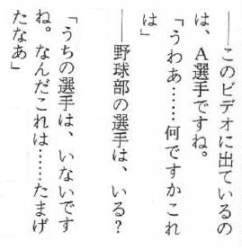 ――このビデオに出ているの
は、A選手ですね。
「うわあ……何ですかこれ
は」
――野球部の選手は、いる?
「うちの選手は、いないです
ね。なんだこれは……たまげ
たなあ」